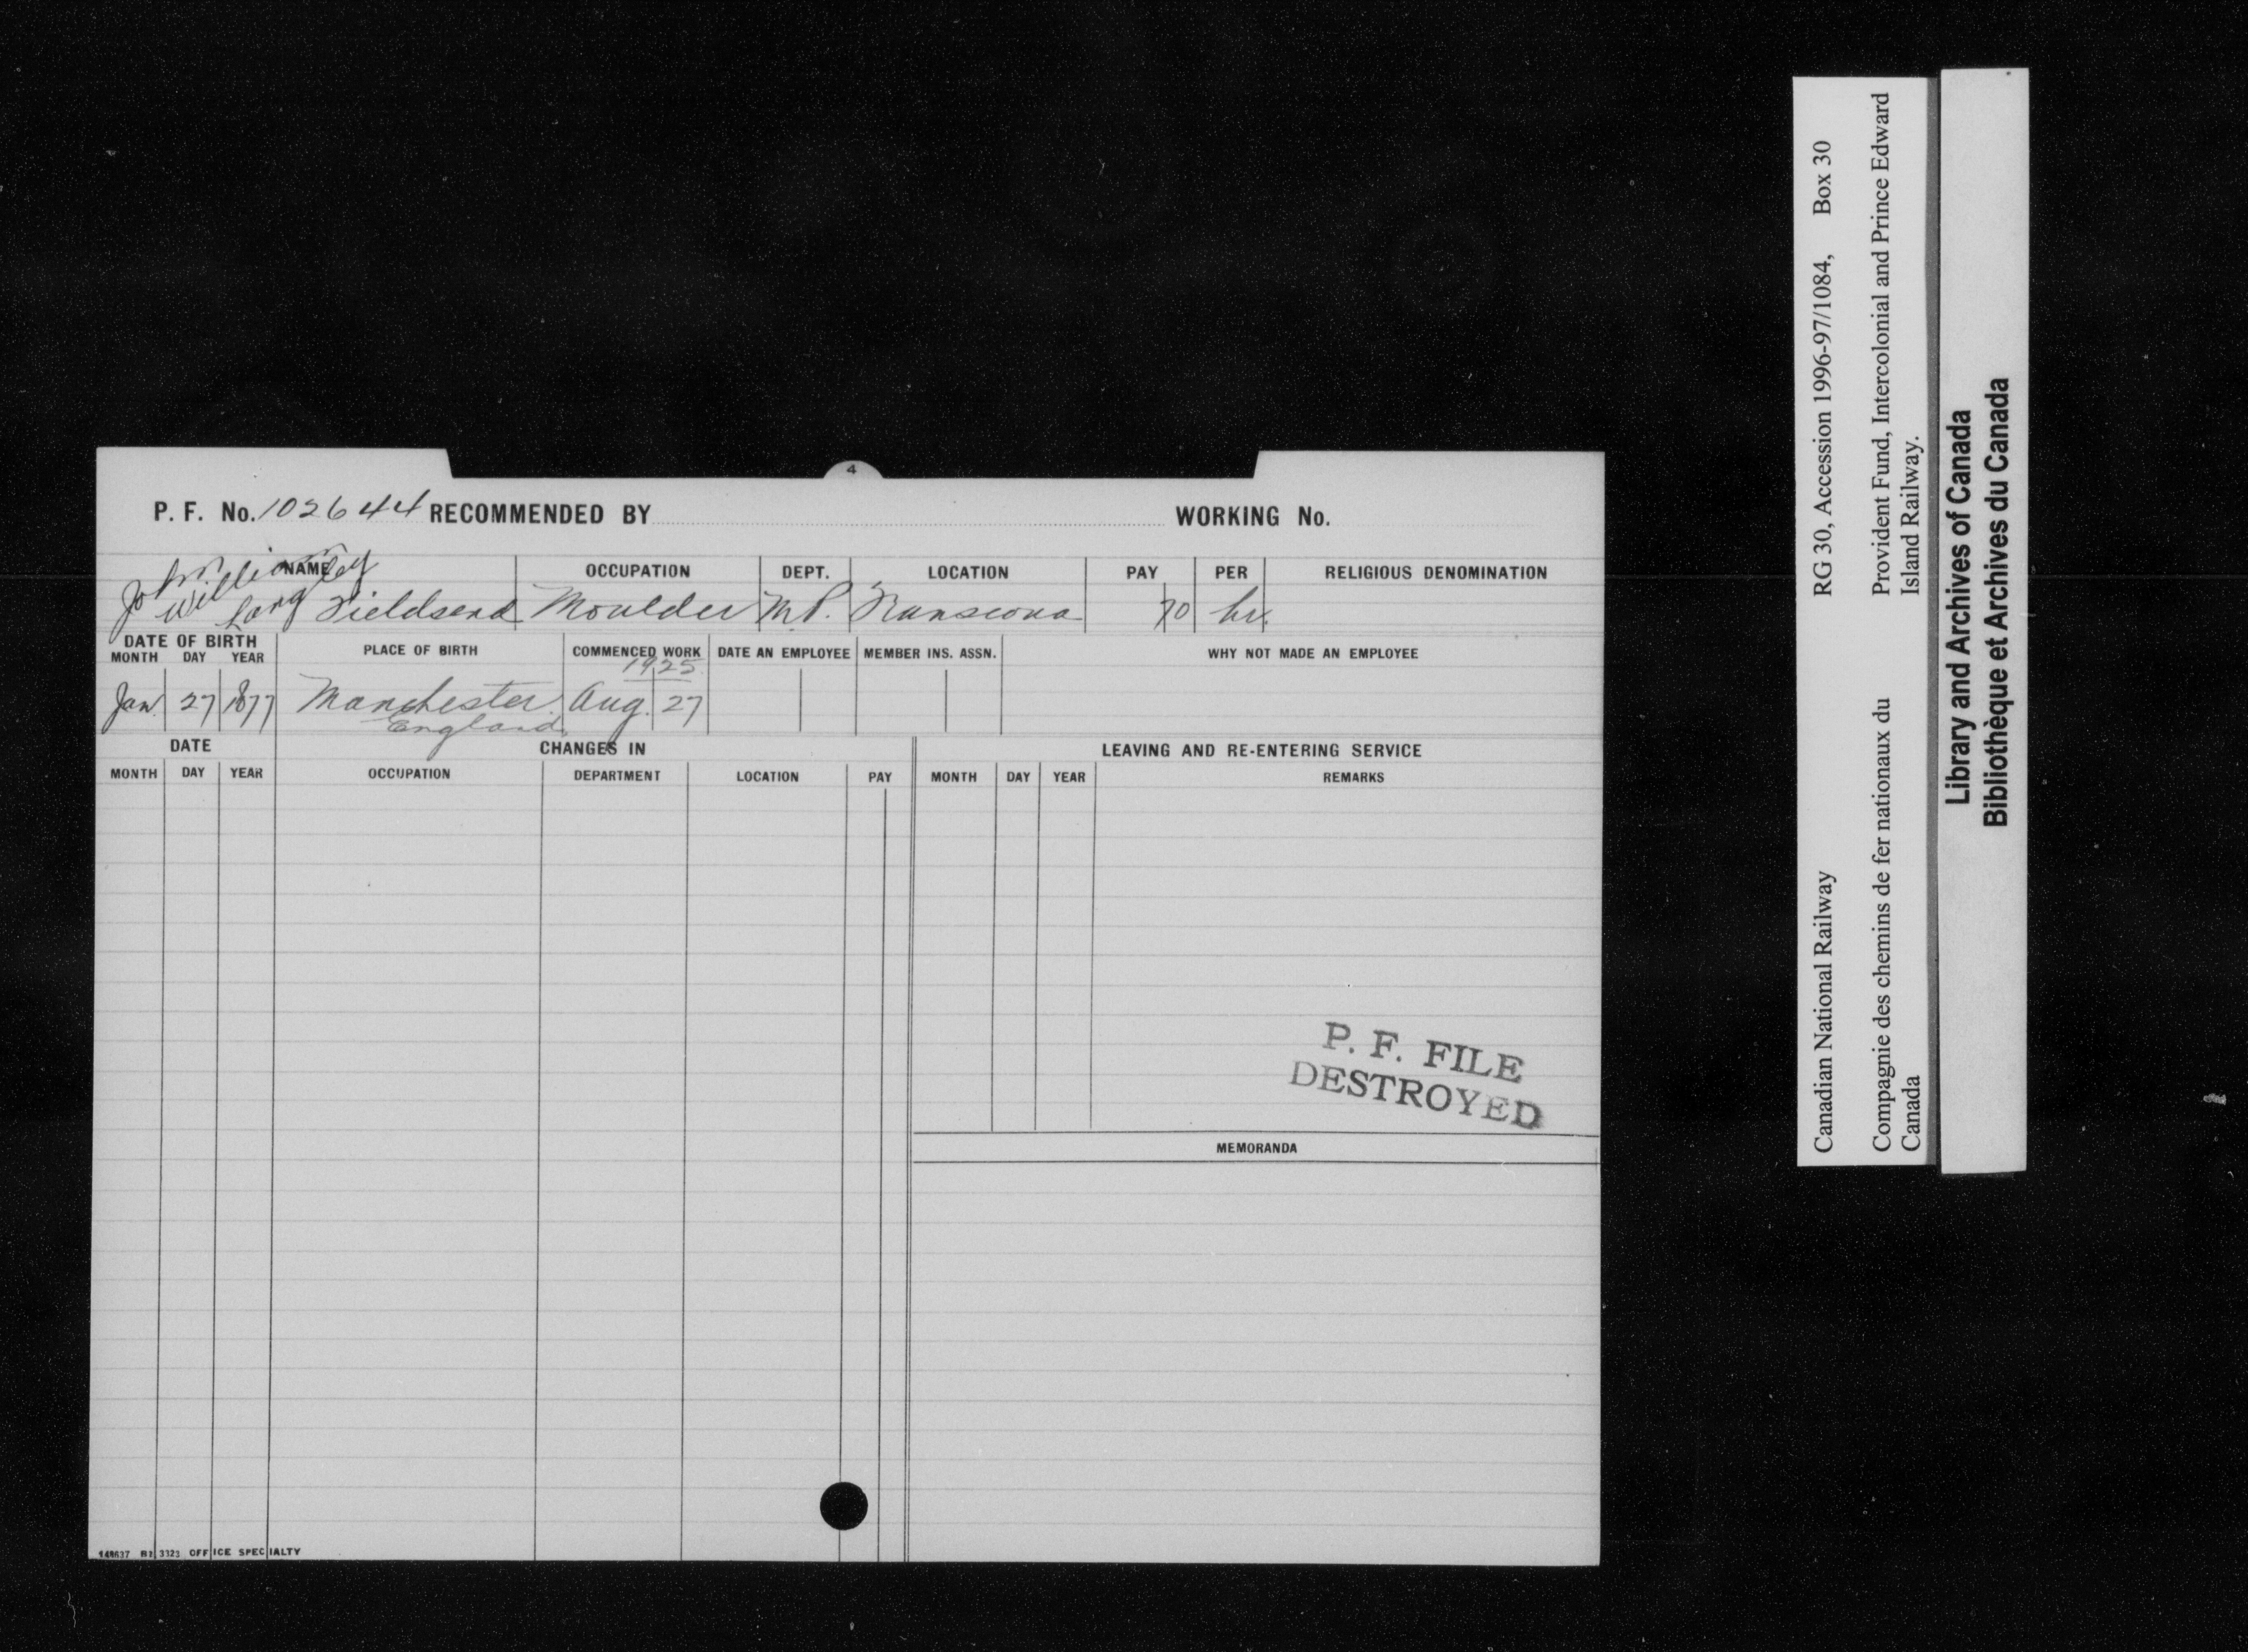 4
P. F. No. 102644 RECOMMENDED BY WORKING No.
NAME OCCUPATION DEPT. LOCATION PAY PER RELIGIOUS DENOMINATION
John William Langley Fieldsend Moulder M.P. Transcona 70 hr.
DATE OF BIRTH PLACE OF BIRTH COMMENCED WORK DATE AN EMPLOYEE MEMBER INS. ASSN. WHY NOT MADE AN EMPLOYEE
MONTH DAY YEAR
1925
Jan. 27 1877 Manchester Aug. 27
England
DATE CHANGES IN LEAVING AND RE-ENTERING SERVICE
MONTH DAY YEAR OCCUPATION DEPARTMENT LOCATION PAY MONTH DAY YEAR REMARKS
P. F. FILE
DESTROYED
MEMORANDA
3323 OFFICE SPECIALTY
Canadian National Railway RG 30, Accession 1996-97/1084, Box 30
Compagnie des chemins de fer nationaux du Provident Fund, Intercolonial and Prince Edward
Canada Island Railway.
Library and Archives of Canada
Bibliothèque et Archives du Canada